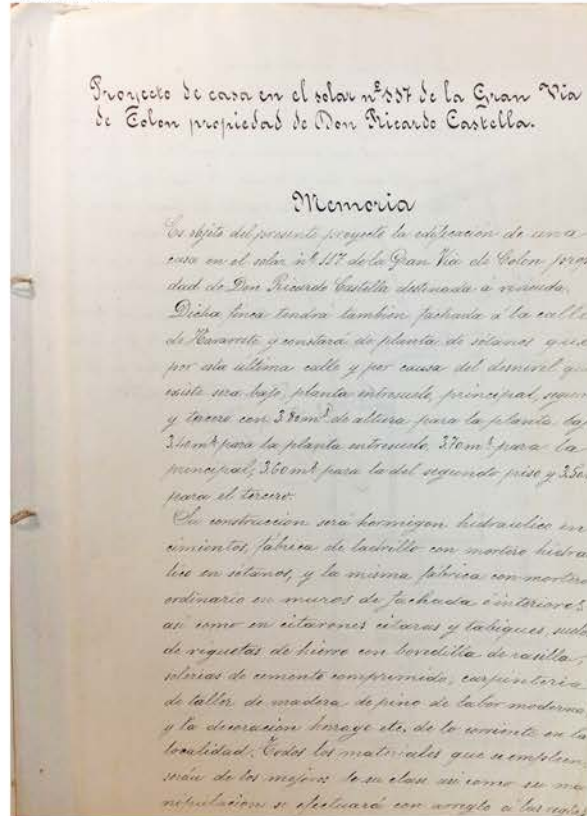 Proyecto de casa en el solar nº 117 de la Gran Via
de Colon propiedad de Don Ricardo Castella.
Memoria
Es objeto del presente proyecto la edificación de una
casa en el solar nº 117 de la Gran Via de Colon propie
dad de Don Ricardo Castella destinada á vivienda.
Dicha finca tendra tambien fachada á la calle
de Navarrete y constará de planta de sótanos que
por esta última calle y por causa del desnivel que
existe sera bajo, planta entresuelo, principal, segun
y tercero con 3.80 mts de altura para la planta baj
3.40 mts para la planta entresuelo, 3.70 mts para la
principal, 3.60 mts para la del segundo piso y 3.50
para el tercero.
Su construccion será hormigon hidraulico en
cimientos, fábrica de ladrillo con mortero hidrau
lico en sótanos, y la misma fábrica con mortero
ordinario en muros de fachada é interiores
asi como en citarones citaras y tabiques, suelos
de viguetas de hierro con bovedilla de rasilla
solerias de cemento comprimido, carpinteria
de taller de madera de pino de labor moderna
y la decoracion herrage etc. de lo corriente en la
localidad. Todos los materiales que se empleen
serán de los mejores de su clase asi como su ma
nipulacion se efectuará con arreglo á las reglas